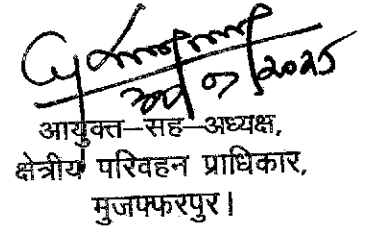 07/2025
आयुक्त–सह–अध्यक्ष,
क्षेत्रीय परिवहन प्राधिकार,
मुजफ्फरपुर।